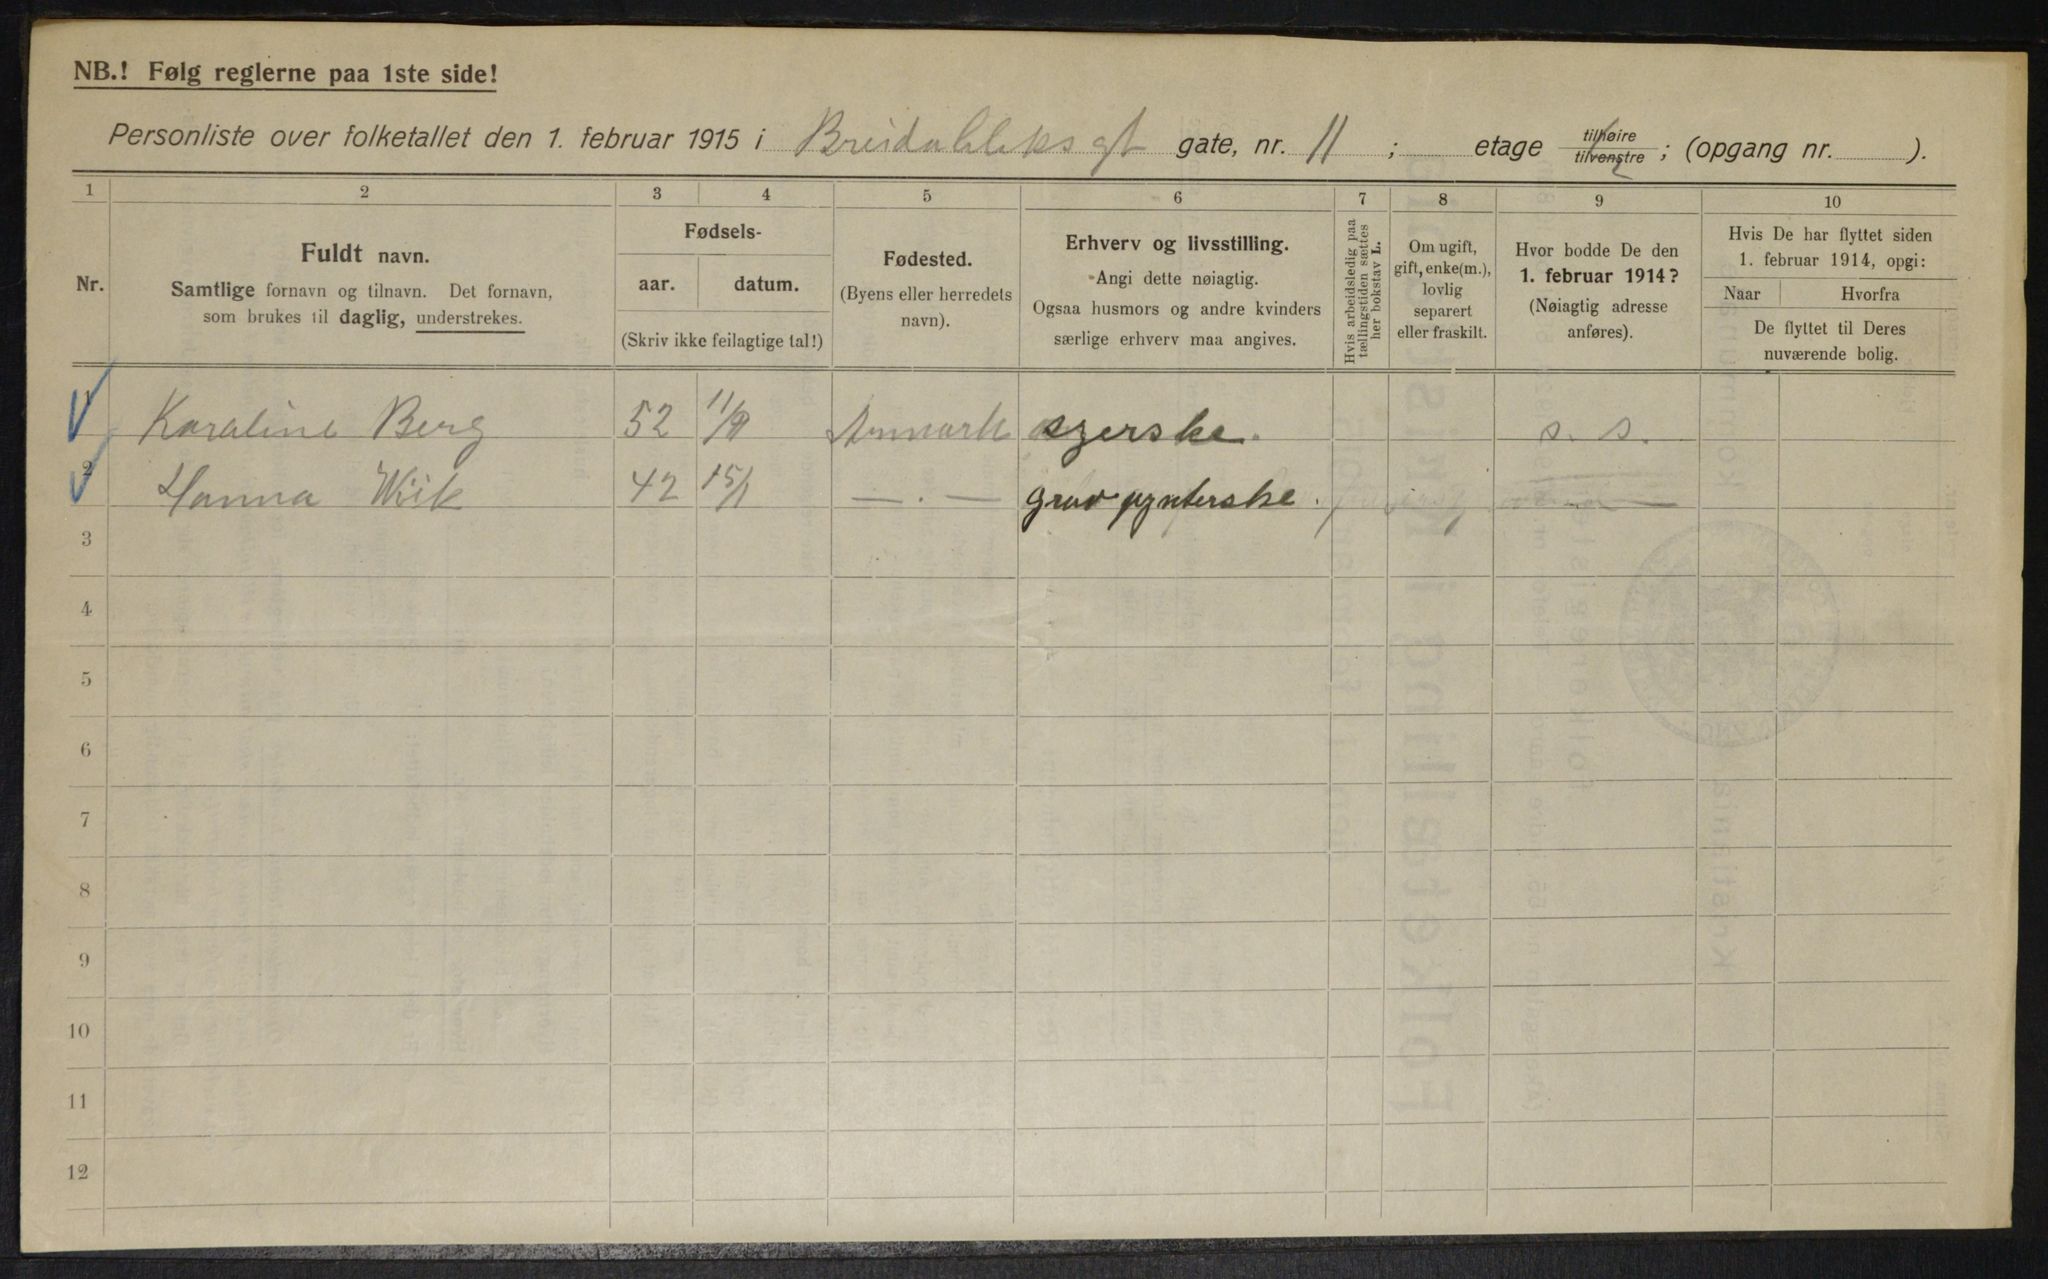 NB.! Følg reglerne paa 1ste side!
Personliste over folketallet den 1. februar 1915 i Breidablleksgt gate, nr. 11 ; etage tilhøire tilvenstre ; (opgang nr. ).
1 2 3 4 5 6 7 8 9 10
Nr.
Fuldt navn.
Samtlige fornavn og tilnavn. Det fornavn,
som brukes til daglig, understrekes.
Fødsels-
aar. datum.
(Skriv ikke feilagtige tal!)
Fødested.
(Byens eller herredets
navn).
Erhverv og livsstilling.
Angi dette nøiagtig.
Ogsaa husmors og andre kvinders
særlige erhverv maa angives.
Hvis arbeidsledig paa
tællingstiden sættes
her bokstav L.
Om ugift,
gift, enke(m.),
lovlig
separert
eller fraskilt.
Hvor bodde De den
1. februar 1914?
(Nøiagtig adresse
anføres).
Hvis De har flyttet siden
1. februar 1914, opgi:
Naar Hvorfra
De flyttet til Deres
nuværende bolig.
1 Karaline Berg 52 11/9 syerske. s. s.
2 Hanna Wiik 42 15/1 — . — gravpynterske.
3
4
5
6
7
8
9
10
11
12